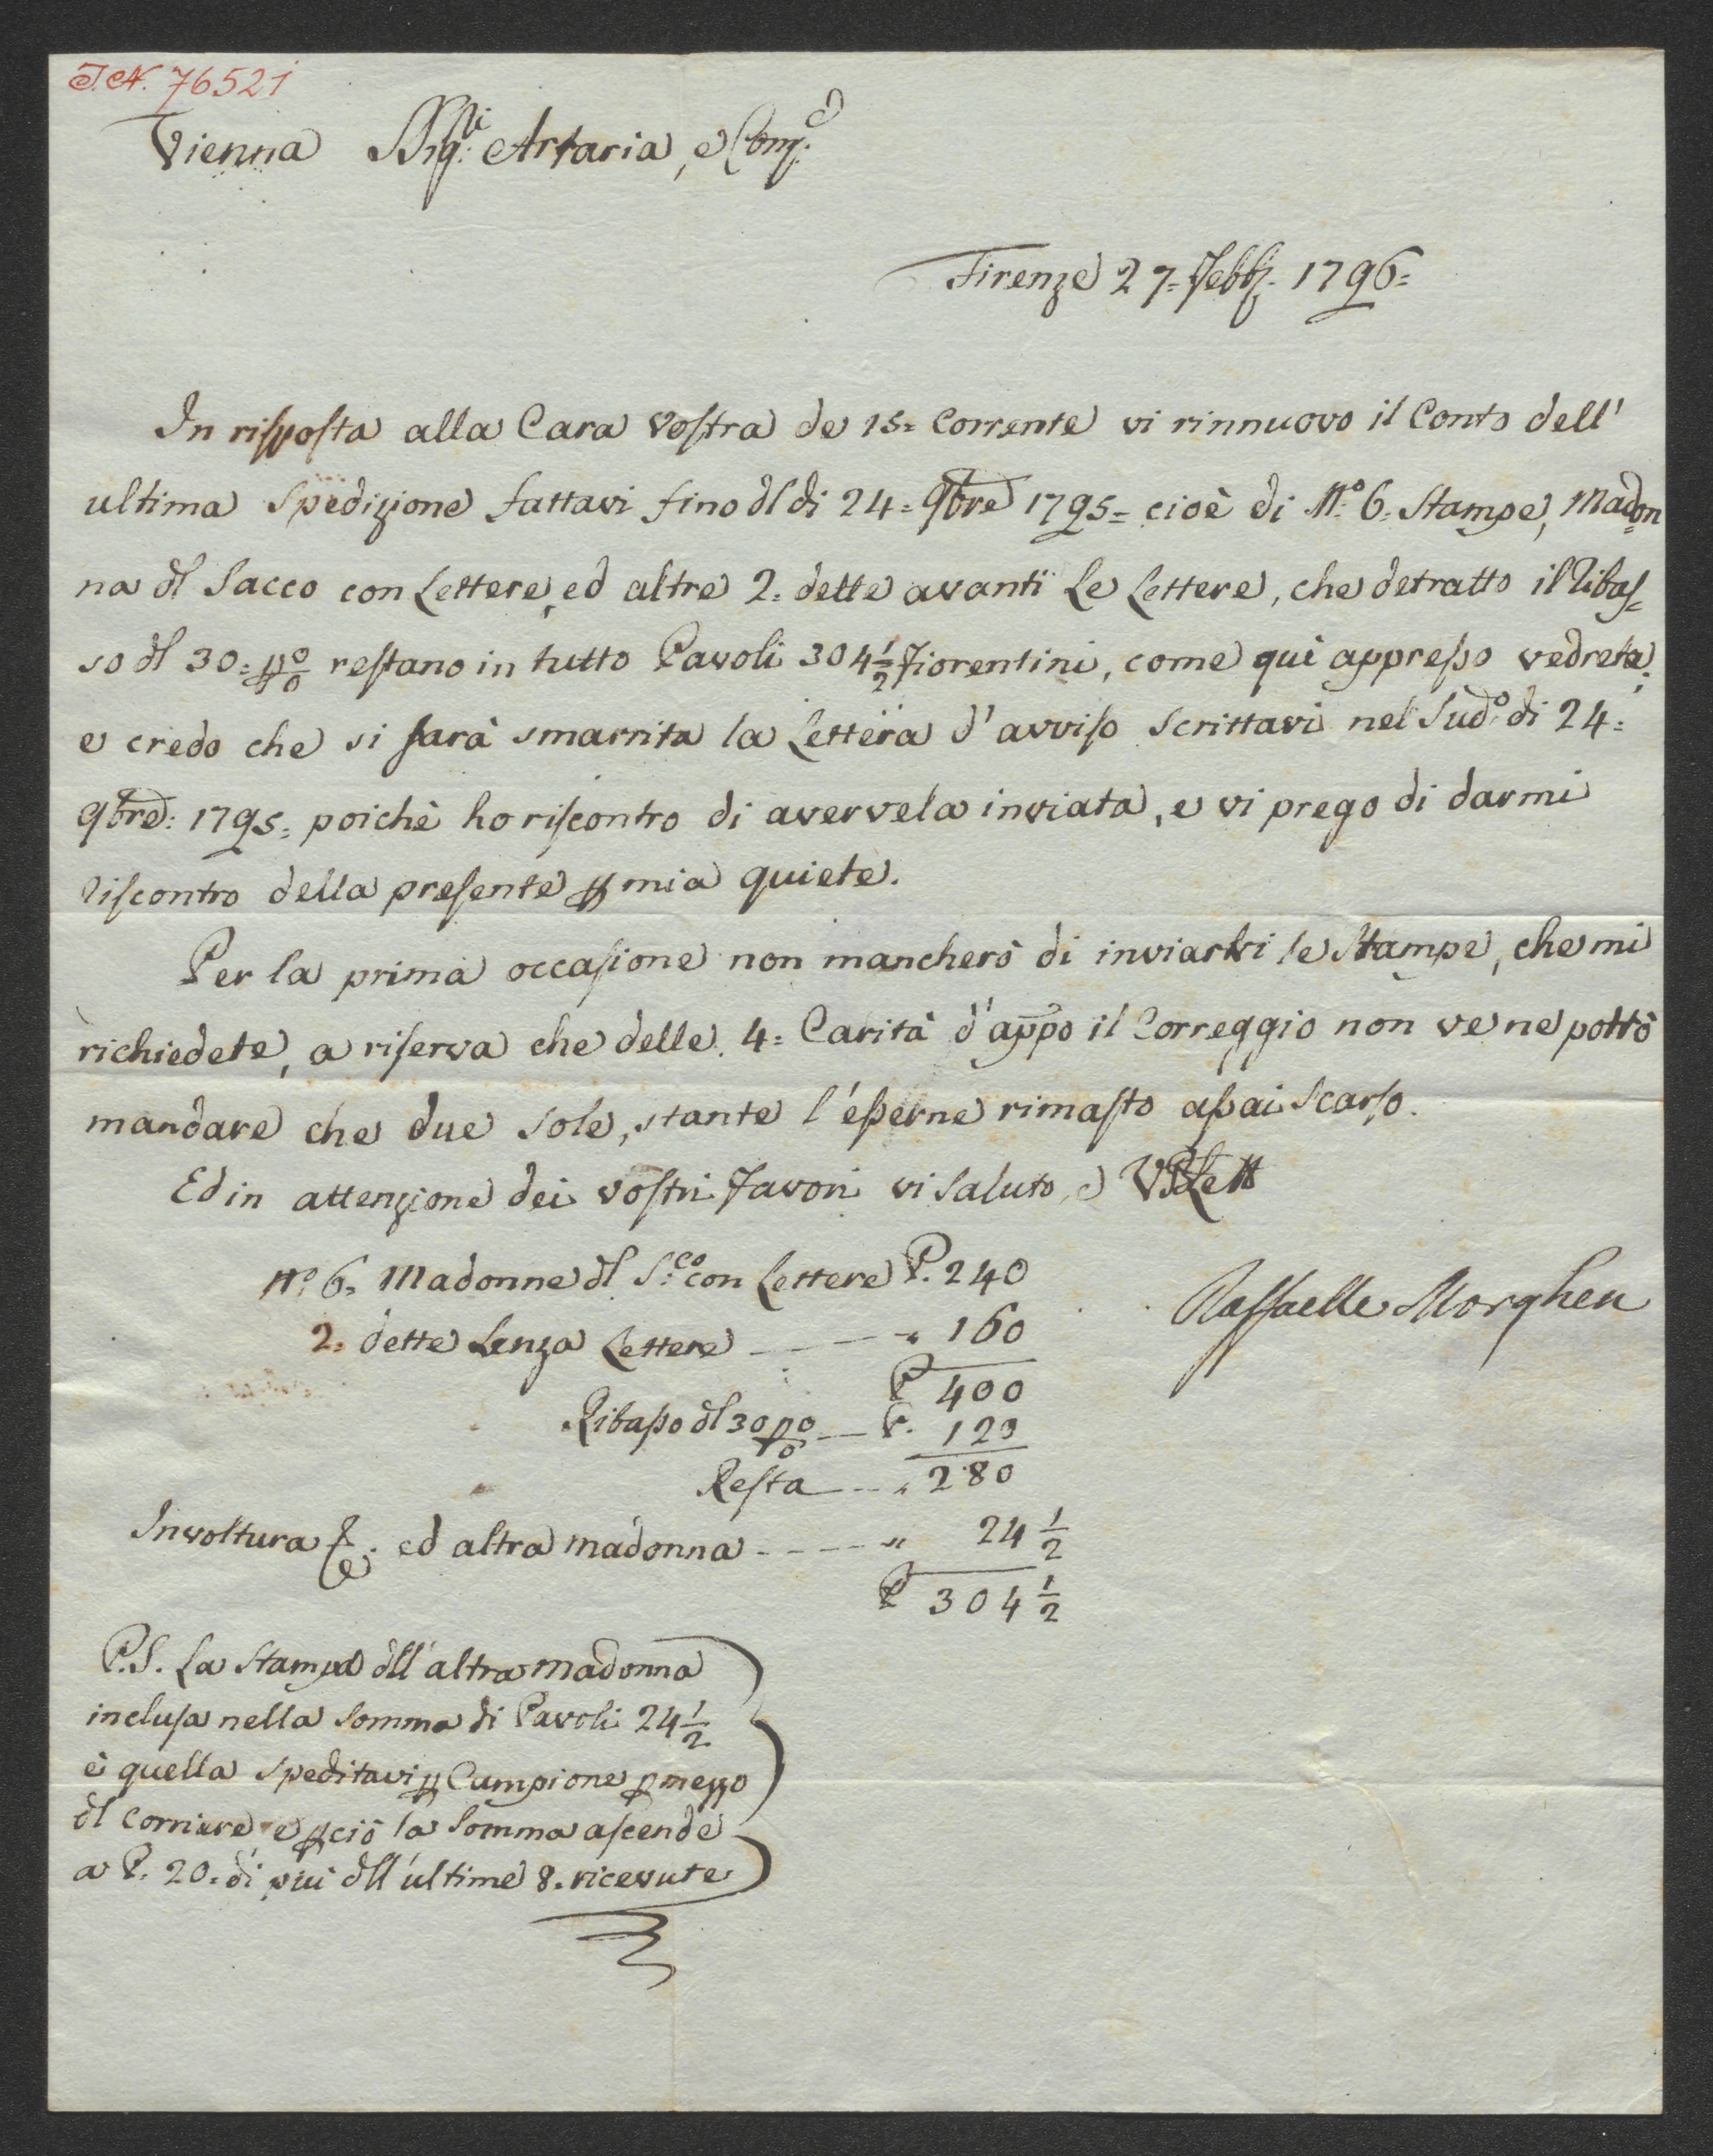 I.N. 76521
Vienna SSig:ri Artaria, e Comp.
Firenze 27= Febb. 1796=
In risposta alla Cara vostra de 15= Corrente vi rinnuovo il Conto dell'
ultima spedizione fattavi fino dl di 24= 9bre 1795= cioè di N.o 6. Stampe, Madon
na dl Sacco con Lettere, ed altre 2. dette avanti Le Lettere, che detratto il Ribas=
so dl 30= p%o restano in tutto Pavoli 304 1/2 Fiorentini, come quì appresso vedrete;
e credo che si sarà smarrita la Lettera d'avviso Scrittavi nel Sud.o di 24=
9bre: 1795= poichè ho riscontro di avervela inviata, e vi prego di darmi
riscontro della presente p mia quiete.
Per la prima occasione non mancherò di inviarvi le Stampe, che mi
richiedete, a riserva che delle 4= Carità d'appo il Correggio non ve ne pottò
mandare che due sole, stante l'esserne rimasto assai Scarso.
Ed in attenzione dei vostri Favori vi saluto, e
N.o 6. Madonne dl S.co con Lettere P. 240
2. dette senza Lettere - - - " 160
P 400
Ribasso dl 30 p%o — P. 120
Resta - - " 280
Involtura &. ed altra madonna - - - - " 24 1/2
P 304 1/2
Raffaelle Morghen
P.S. La Stampa dll'altra madonna
inclusa nella somma di Pavoli 24 1/2
è quella speditavi p Campione p mezzo
dl Corriere e pciò la Somma ascende
a P. 20. di più dll'ultime 8. ricevute